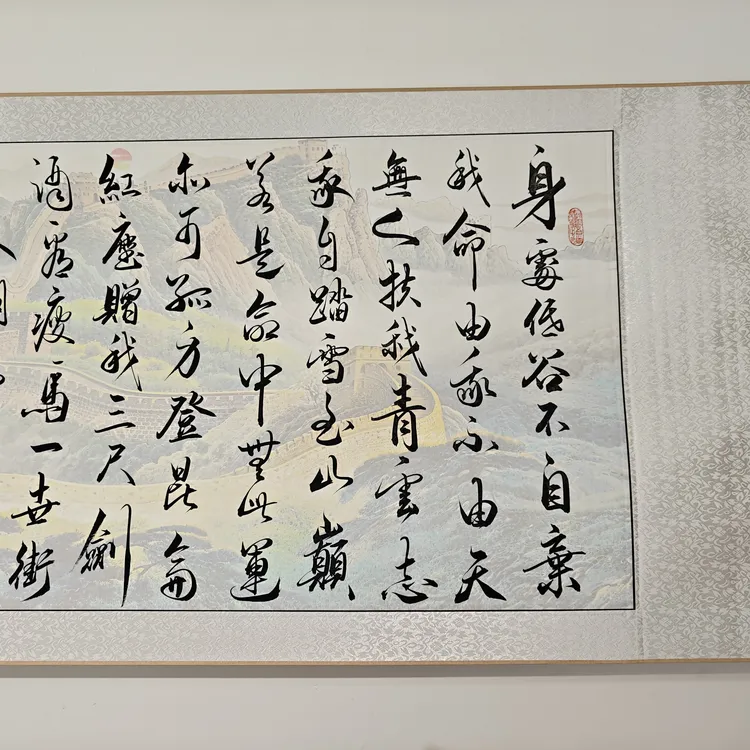 身處低谷不自棄
我命由我不由天
無人扶我青雲志
我自踏雪至山巔
若是命中無此運
亦可孤方登昆侖
紅塵贈我三尺劍
酒肴瘦馬一世街